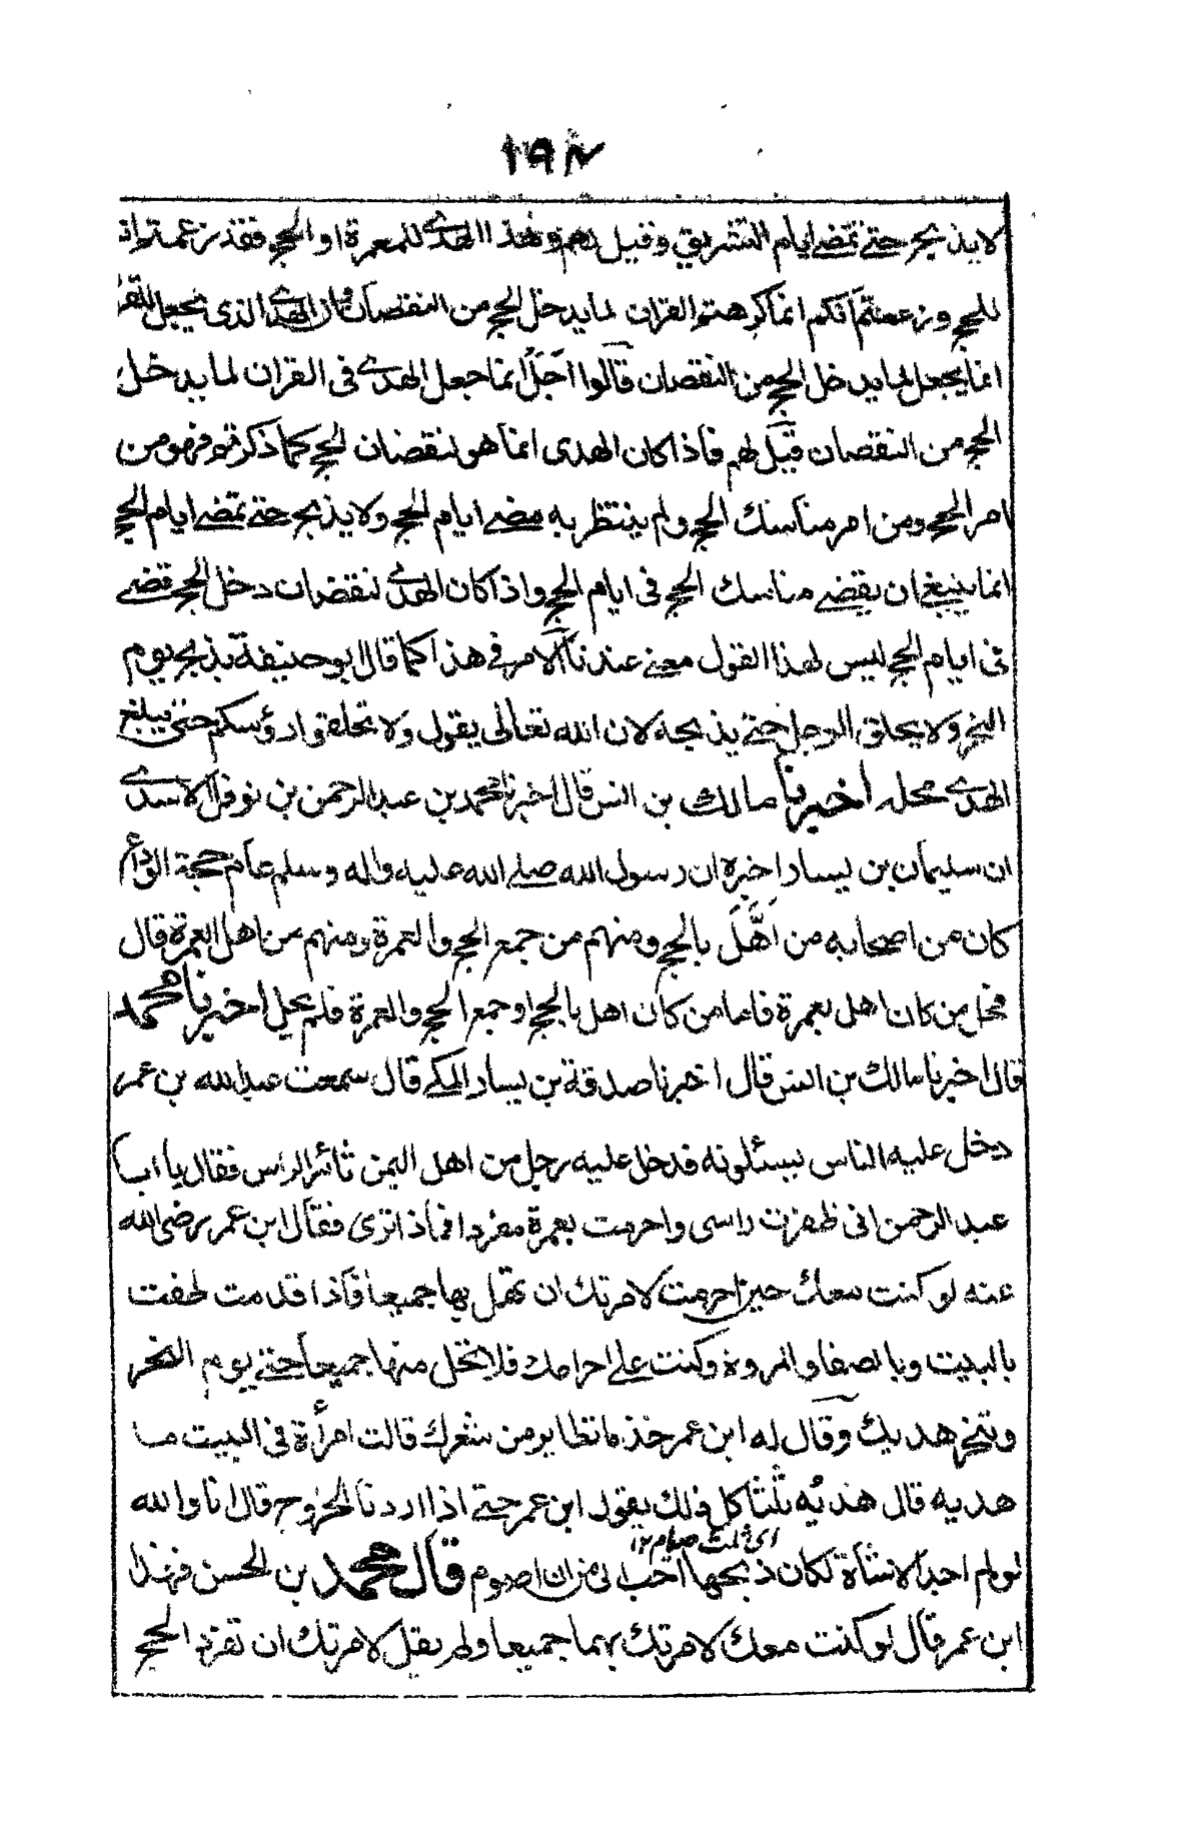 ١٩٤
لا يذبح حتى تمضى ايام التشريق وقيل لهم وهذا الهدى للمعرة او الحج فقد زعمتم انه
للحج وزعمتم انكم انما كرهتم القران لما يدخل الحج من النقصان وان الهدى الذى يجعل للقر
انما يجعل لما يدخل الحج من النقصان قالوا اجل انما جعل الهدى فى القران لما يدخل
الحج من النقصان قيل لهم فاذا كان الهدى انما هو لنقضان الحج كما ذكرتم فهو من
امر الحج ومن امر مناسك الحج ولم ينتظر به مضى ايام الحج ولا يذبح حتى تمضى ايام الحج
انما ينبغى ان يقضى مناسك الحج فى ايام الحج واذا كان الهدى لنقضان دخل الحج قضى
فى ايام الحج ليس لهذا القول معنى عندنا الامر فى هذا كما قال ابو حنيفة يذبح يوم
النحر ولا يحلق الرجل حتى يذبحه لان الله تعالى يقول ولا تحلقوا رؤسكم حتى يبلغ
الهدى محله اخبرنا مالك بن انس قال اخبرنا محمد بن عبد الرحمن بن نوفل الاسدى
ان سليمان بن يسار اخبره ان رسول الله صلى الله عليه واله وسلم عام حجة الوداع
كان من اصحابه من اَهَّلَ بالحج ومنهم من جمع الحج والعمرة ومنهم من اهل العمرة قال
فحل من كان اهل بعمرة فاما من كان اهل بالحج او جمع الحج والعمرة فلم يحل اخبرنا محمد
قال اخبرنا مالك بن انس قال اخبرنا صدقة بن يسار المكى قال سمعت عبد الله بن عمر
دخل عليه الناس يسئلونه فدخل عليه رجل من اهل اليمن ثائر الراس فقال يا ابا
عبد الرحمن انى ظفرت راسى واحرمت بعمرة مفردا فماذا ترى فقال ابن عمر رضى الله
عنه لو كنت معك حين احرمت لامرتك ان تهل بها جميعا فاذا قدمت طفت
بالبيت وبالصفا والمروة وكنت على احرامك فلا تحل منها جميعا حتى يوم النحر
وتنحر هديك وقال له ابن عمر خذ ما تطاير من شعرك قالت امرأة فى البيت ما
هديه قال هديُه ثلثا كل ذلك يقول ابن عمر حتى اذا اردنا الخروج قال انا والله
اى ثلث صيام ١٢
لو لم اجد الا شأة لكان ذبحها احب الى من ان اصوم قال محمد بن الحسن فهذا
ابن عمر قال لو كنت معك لامرتك بهما جميعا ولم يقل لامرتك ان تفرد الحج